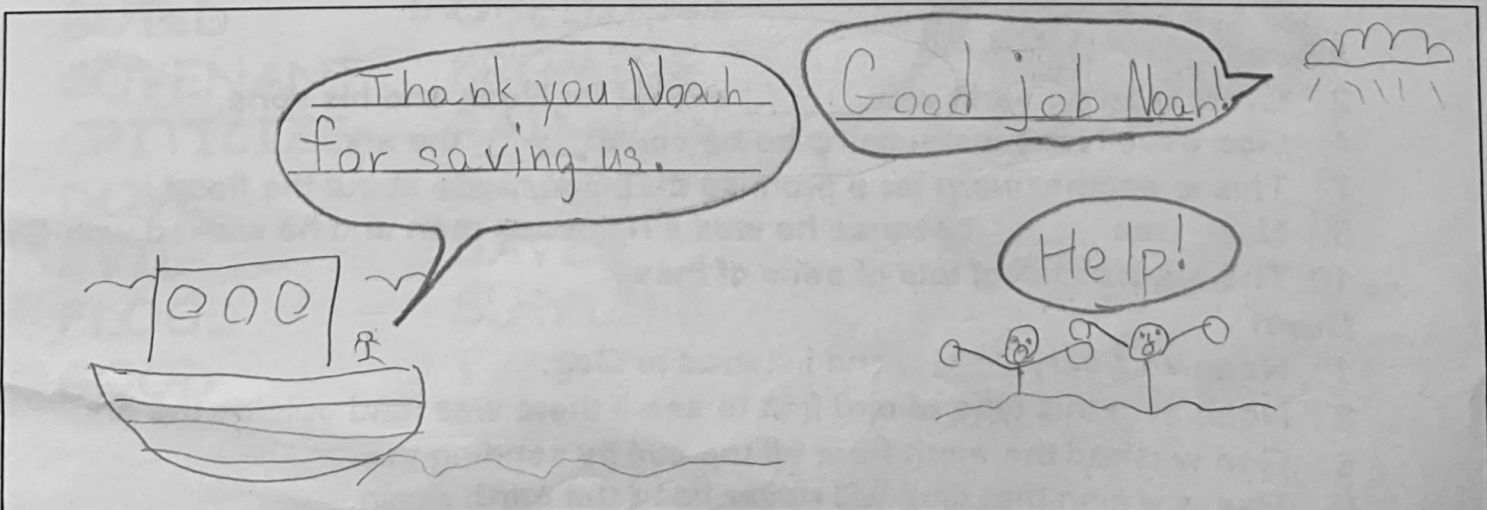 Thank you Noah
for saving us.
Good job Noah!
Help!